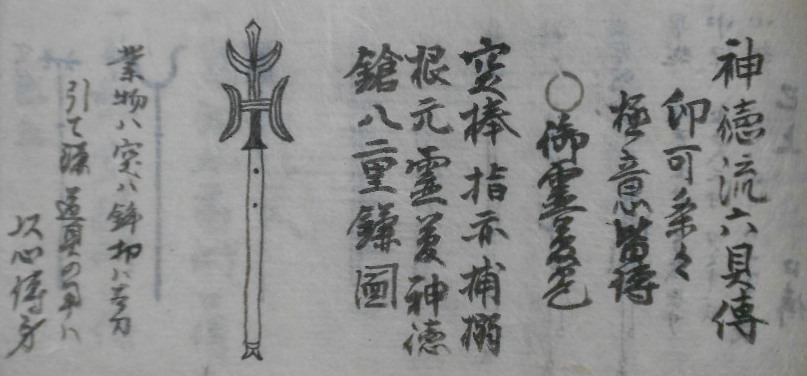 神徳流六具傳
印可条々
極意皆傳
〇御霊夢之巻
突棒指亦捕搦
根元霊夢神徳
鎗八二重鎌圖
業物ハ突ハ鉾切ハ長刀
引て鎌道具の事ハ
以心傳身